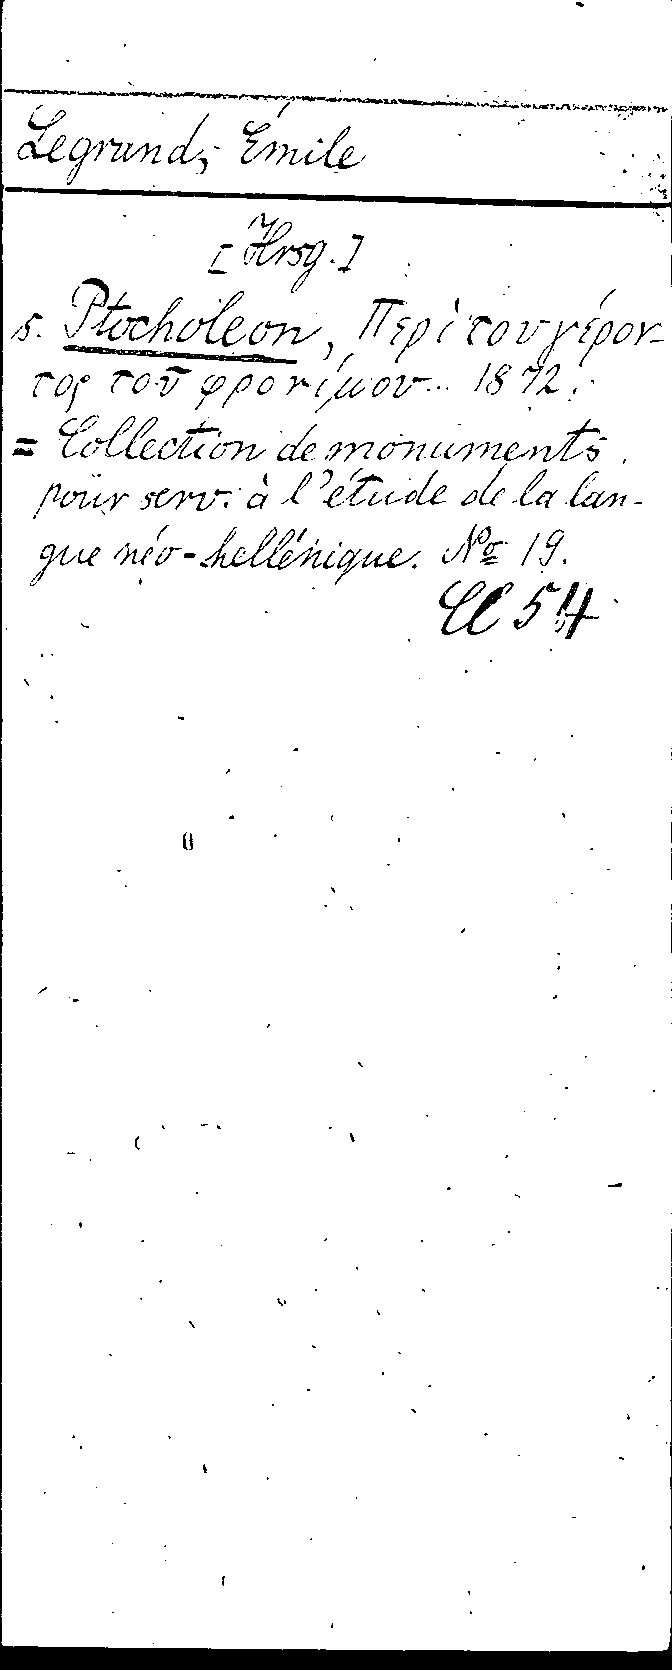 Legrand, Émile
[Hrsg.]
s. Ptocholeon, Περὶ του γέρον-
τος τοῦ φρονίμου... 1872.
= Collection de monuments
pour serv. à l'étude de la lan-
gue néo-hellénique. No 19.
CC 54